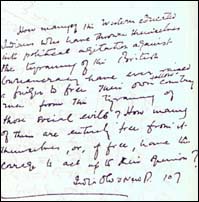 How many of the Western educated
Indians who have thrown themselves
into political agitation against
the tyranny of the British
bureaucracy have ever raised
a finger to free their own country
men from the tyranny of
those social evils? How many
of them are entirely free from it
themselves, or, if free, have the
courage to act up to their opinions?
Indian Unrest P. 107